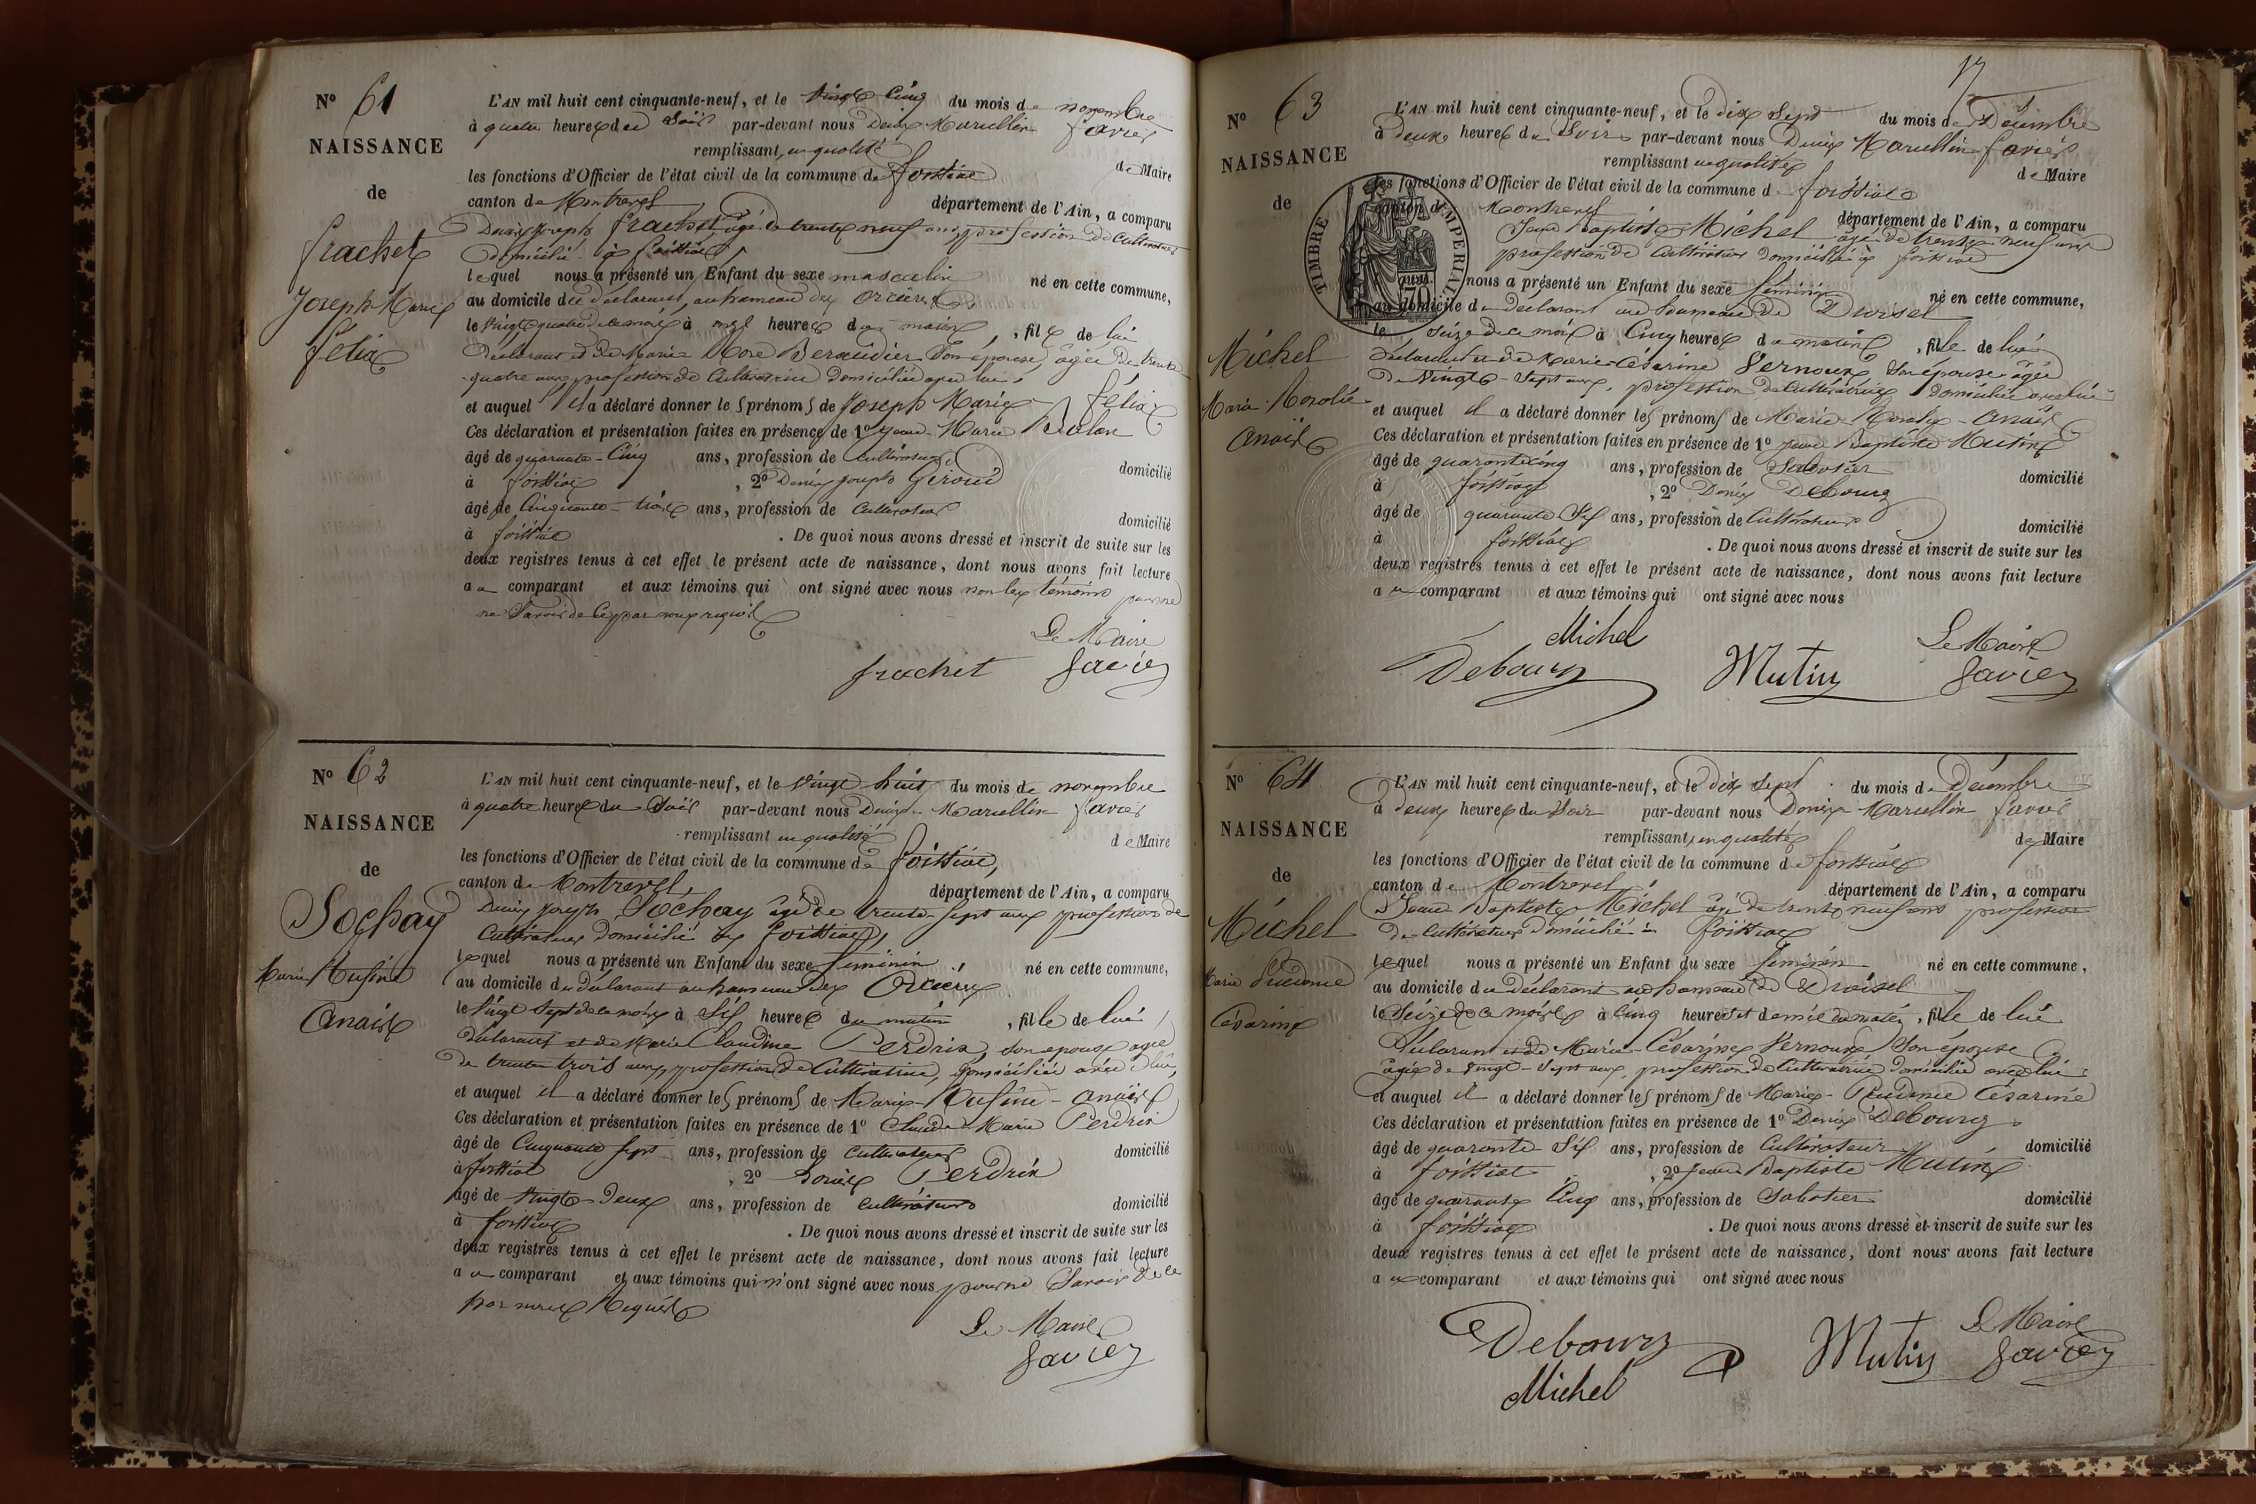 Nº 61
NAISSANCE
de
frachet
Joseph Marie
félix
L'AN mil huit cent cinquante-neuf, et le Vingt Cinq du mois de novembre
à quatre heures du Soir par-devant nous Denis Marcellin favier
remplissant en qualité de Maire
les fonctions d'Officier de l'état civil de la commune de foissiat
canton de Montrevel département de l'Ain, a comparu
Denis Joseph frachet âgé de trente neuf ans profession de Cultivateur
domicilié à foissiat
lequel nous a présenté un Enfant du sexe masculin né en cette commune,
au domicile du déclarant, au hameau des Orcières
le Vingt quatre de ce mois à onze heures du matin, fils de lui
déclarant et de Marie Rose Beraudier Son épouse, âgée de trente
quatre ans profession de Cultivatrice domiciliée avec lui,
et auquel il a déclaré donner les prénoms de Joseph Marie félix
Ces déclaration et présentation faites en présence de 1º Jean-Marie
âgé de quarante-Cinq ans, profession de Cultivateur domicilié
à foissiat, 2º Denis Joseph
âgé de Cinquante-trois ans, profession de Cultivateur domicilié
à foissiat. De quoi nous avons dressé et inscrit de suite sur les
deux registres tenus à cet effet le présent acte de naissance, dont nous avons fait lecture
au comparant et aux témoins qui ont signé avec nous non les témoins pour ne
Savoir de ce par nous requis
Le Maire
frachet favier
Nº 62
NAISSANCE
de
Sochay
Marie
Anaïs
L'AN mil huit cent cinquante-neuf, et le Vingt huit du mois de novembre
à quatre heures du Soir par-devant nous Denis Marcellin favier
remplissant en qualité de Maire
les fonctions d'Officier de l'état civil de la commune de foissiat,
canton de Montrevel, département de l'Ain, a comparu
Denis Joseph Sochay âgé de trente-sept ans profession de
Cultivateur domicilié à foissiat,
lequel nous a présenté un Enfant du sexe féminin né en cette commune,
au domicile du déclarant au hameau des Orcières
le Vingt Sept de ce mois à Six heures du matin, fille de lui
déclarant et de Marie Claudine Perdrix, son épouse âgée
de trente trois ans, profession de Cultivatrice, domiciliée avec lui,
et auquel il a déclaré donner les prénoms de Marie- -anaïs
Ces déclaration et présentation faites en présence de 1º Claude-Marie Perdrix
âgé de Cinquante Sept ans, profession de Cultivateur domicilié
à foissiat, 2º Perdrix
âgé de Vingt-Deux ans, profession de Cultivateur domicilié
à foissiat. De quoi nous avons dressé et inscrit de suite sur les
deux registres tenus à cet effet le présent acte de naissance, dont nous avons fait lecture
au comparant et aux témoins qui n'ont signé avec nous pour ne Savoir de ce
par nous Requis
Le Maire
favier
17
Nº 63
NAISSANCE
de
Michel
Marie-Rosalie
Anaïs
L'AN mil huit cent cinquante-neuf, et le dix Sept du mois de Décembre
à deux heures du Soir par-devant nous Denis Marcellin favier
remplissant en qualité de Maire
les fonctions d'Officier de l'état civil de la commune de foissiat
canton de Montrevel département de l'Ain, a comparu
Jean Baptiste Michel âgé de trente neuf ans
profession de Cultivateur domicilié à foissiat
TIMBRE IMPERIAL
nous a présenté un Enfant du sexe féminin né en cette commune,
au domicile du déclarant au hameau de Droisel
le Seize de ce mois à Cinq heures du matin, fille de lui
déclarant et de Marie-Césarine Vernoux Son épouse âgée
de Vingt-Sept ans, profession de Cultivatrice domiciliée avec lui
et auquel il a déclaré donner les prénoms de Marie-Rosalie-Anaïs
Ces déclaration et présentation faites en présence de 1º Jean Baptiste Mutin
âgé de quarante cinq ans, profession de Sabotier domicilié
à foissiat, 2º Denis Debourg
âgé de quarante Six ans, profession de Cultivateur domicilié
à foissiat. De quoi nous avons dressé et inscrit de suite sur les
deux registres tenus à cet effet le présent acte de naissance, dont nous avons fait lecture
au comparant et aux témoins qui ont signé avec nous
Michel Le Maire
Debourg Mutin favier
Nº 64
NAISSANCE
de
Michel
Marie
Césarine
L'AN mil huit cent cinquante-neuf, et le dix Sept du mois de Décembre
à deux heures du Soir par-devant nous Denis Marcellin favier
remplissant en qualité de Maire
les fonctions d'Officier de l'état civil de la commune de foissiat
canton de Montrevel département de l'Ain, a comparu
Jean Baptiste Michel âgé de trente neuf ans profession
de Cultivateur domicilié à foissiat
lequel nous a présenté un Enfant du sexe féminin né en cette commune,
au domicile du déclarant au hameau de Droisel
le Seize de ce mois à Cinq heures et demie du matin, fille de lui
déclarant et de Marie-Césarine Vernoux Son épouse
âgée de Vingt-Sept ans, profession de Cultivatrice domiciliée avec lui
et auquel il a déclaré donner les prénoms de Marie- Césarine
Ces déclaration et présentation faites en présence de 1º Denis Debourg
âgé de quarante Six ans, profession de Cultivateur domicilié
à foissiat, 2º Jean Baptiste Mutin
âgé de quarante Cinq ans, profession de Sabotier domicilié
à foissiat. De quoi nous avons dressé et inscrit de suite sur les
deux registres tenus à cet effet le présent acte de naissance, dont nous avons fait lecture
au comparant et aux témoins qui ont signé avec nous
Le Maire
Debourg Mutin favier
Michel